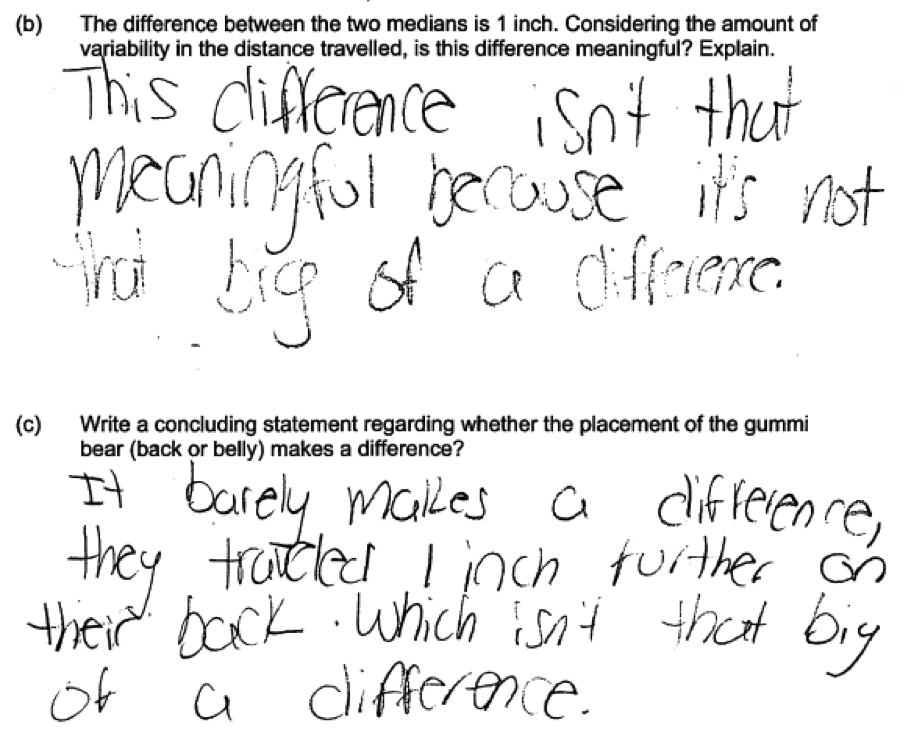 (b) The difference between the two medians is 1 inch. Considering the amount of
variability in the distance travelled, is this difference meaningful? Explain.
This difference isn't that
meaningful because it's not
that big of a difference.
(c) Write a concluding statement regarding whether the placement of the gummi
bear (back or belly) makes a difference?
It barely makes a difference,
they traveled 1 inch further on
their back. Which isn't that big
of a difference.